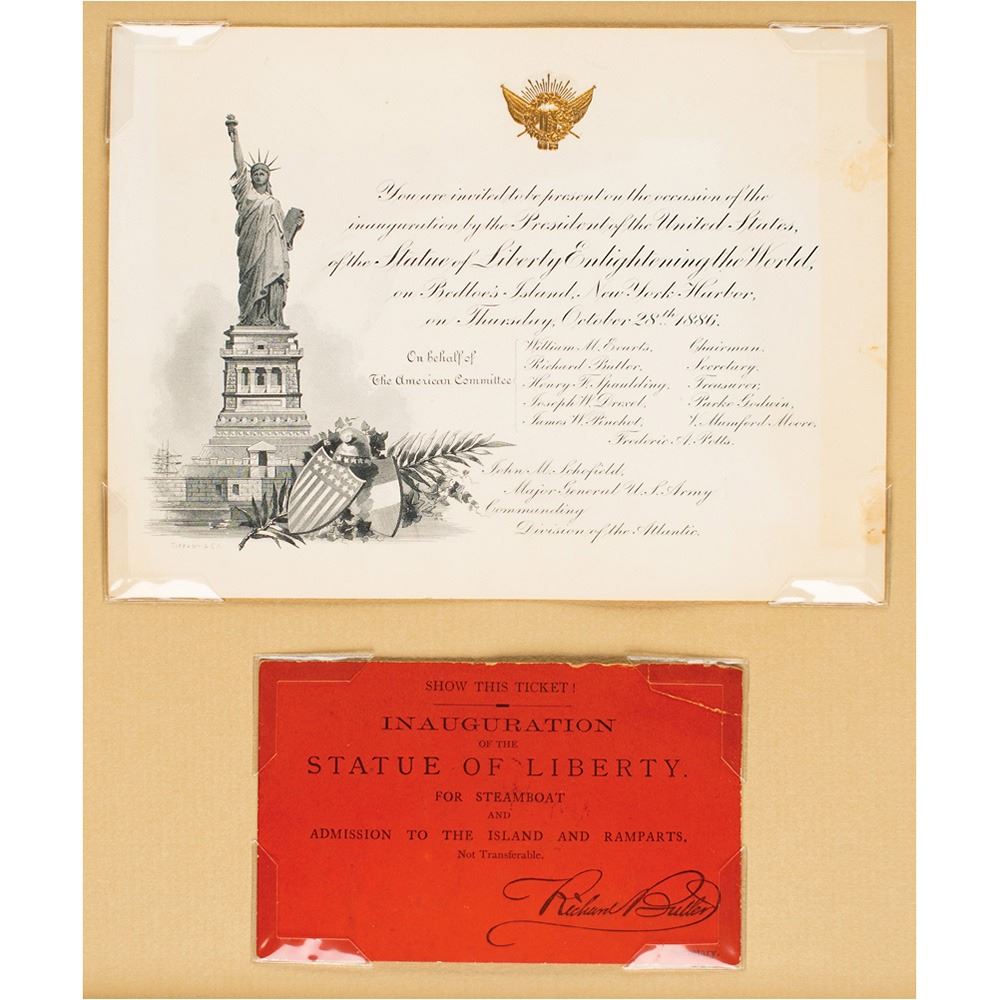 You are invited to be present on the occasion of the
inauguration by the President of the United States,
of the Statue of Liberty Enlightening the World,
on Bedloe's Island, New York Harbor,
on Thursday, October 28th 1886.
On behalf of
The American Committee
William M. Evarts, Chairman.
Richard Butler, Secretary.
Henry F. Spaulding, Treasurer,
Joseph W. Drexel, Parke Godwin,
James W. Pinchot, V. Mumford Moore,
Frederic A. Potts.
John M. Schofield,
Major General U.S. Army
Commanding
Division of the Atlantic.
TIFFANY & CO.
SHOW THIS TICKET!
INAUGURATION
OF THE
STATUE OF LIBERTY.
FOR STEAMBOAT
AND
ADMISSION TO THE ISLAND AND RAMPARTS,
Not Transferable.
Richard Butler